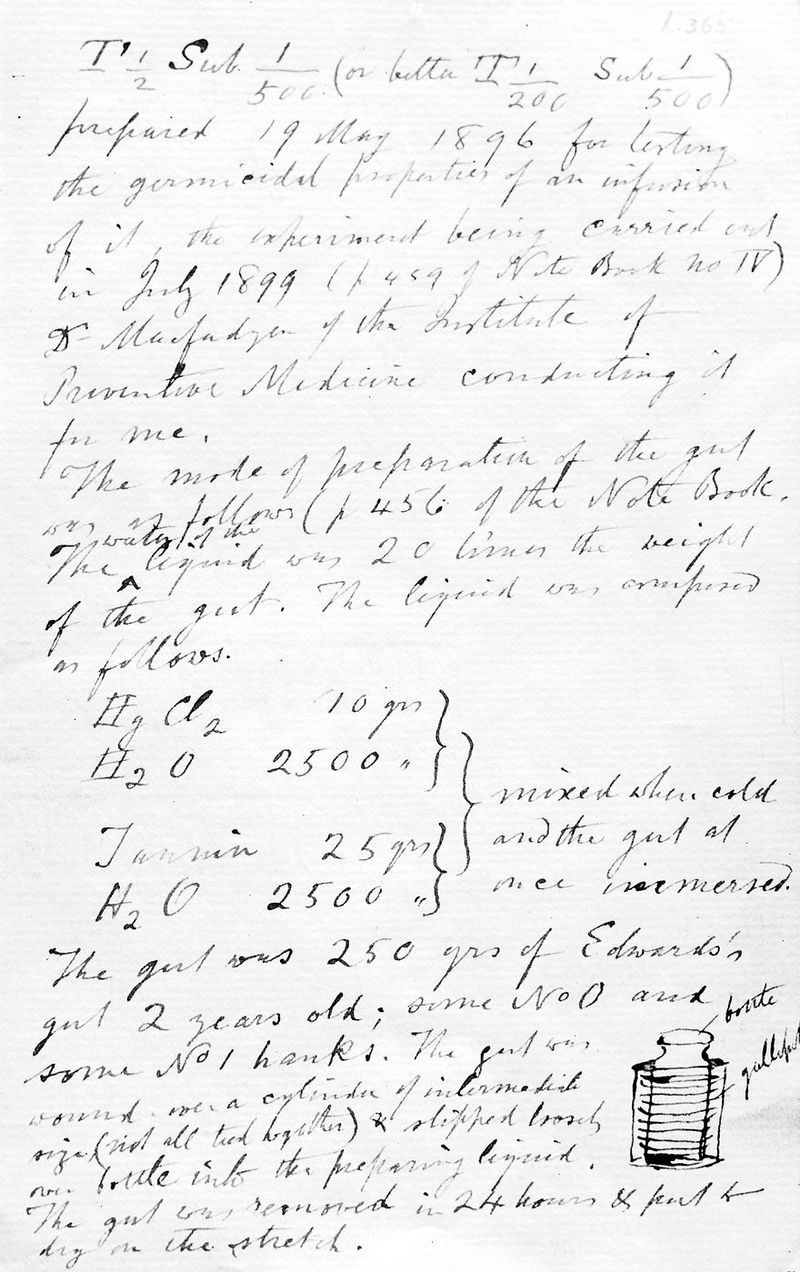 L.365
T' 1/2 Sub. 1/500 (or better T' 1/200 Sub 1/500)
prepared 19 May 1896 for testing
the germicidal properties of an infusion
of it, the experiment being carried out
in July 1899 (p 459 of Note Book no IV)
Dr Macfadyen of the Institute of
Preventive Medicine conducting it
for me.
The mode of preparation of the gut
was as follows (p 456 of the Note Book.
water of the
The liquid was 20 times the weight
of the gut. The liquid was composed
as follows.
Hg Cl2 10 grs
H2O 2500 "
mixed when cold
Tannin 25 grs
and the gut at
H2O 2500 "
once immersed.
The gut was 250 grs of Edwards's
gut 2 years old; some No 0 and
bottle
some No 1 hanks. The gut was
wound over a cylinder of intermediate
size, (not all tied together) & slipped loosely
over bottle into the preparing liquid.
The gut was removed in 24 hours & put to
dry on the stretch.